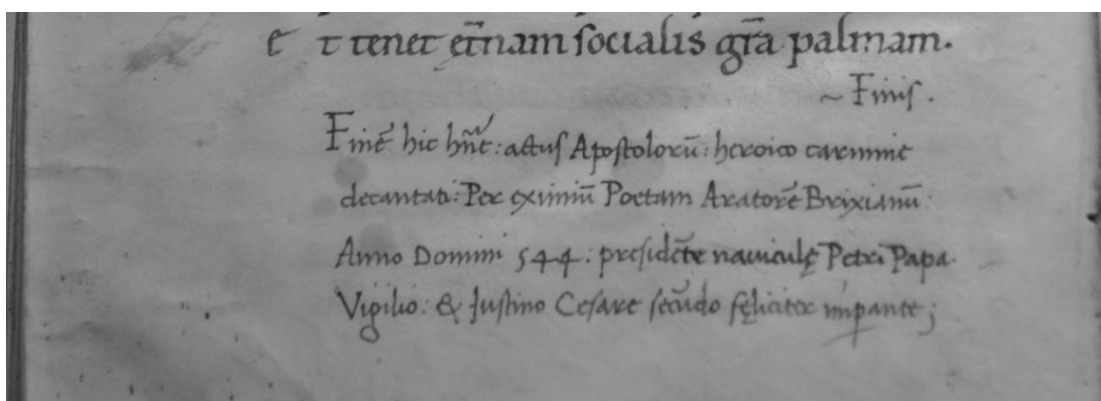 e t tenet et̄nam socialis gr̄a palmam.
~ Finis.
Finē hic hn̄t: actus Apostolorū: heroico carmine
decantati: Per eximiū Poetam Aratorē Brixianū:
Anno Domini 544: presidēte nauiculę Petri Papa
Vigilio: & Iustino Cesare secūdo fęliciter imꝑante;